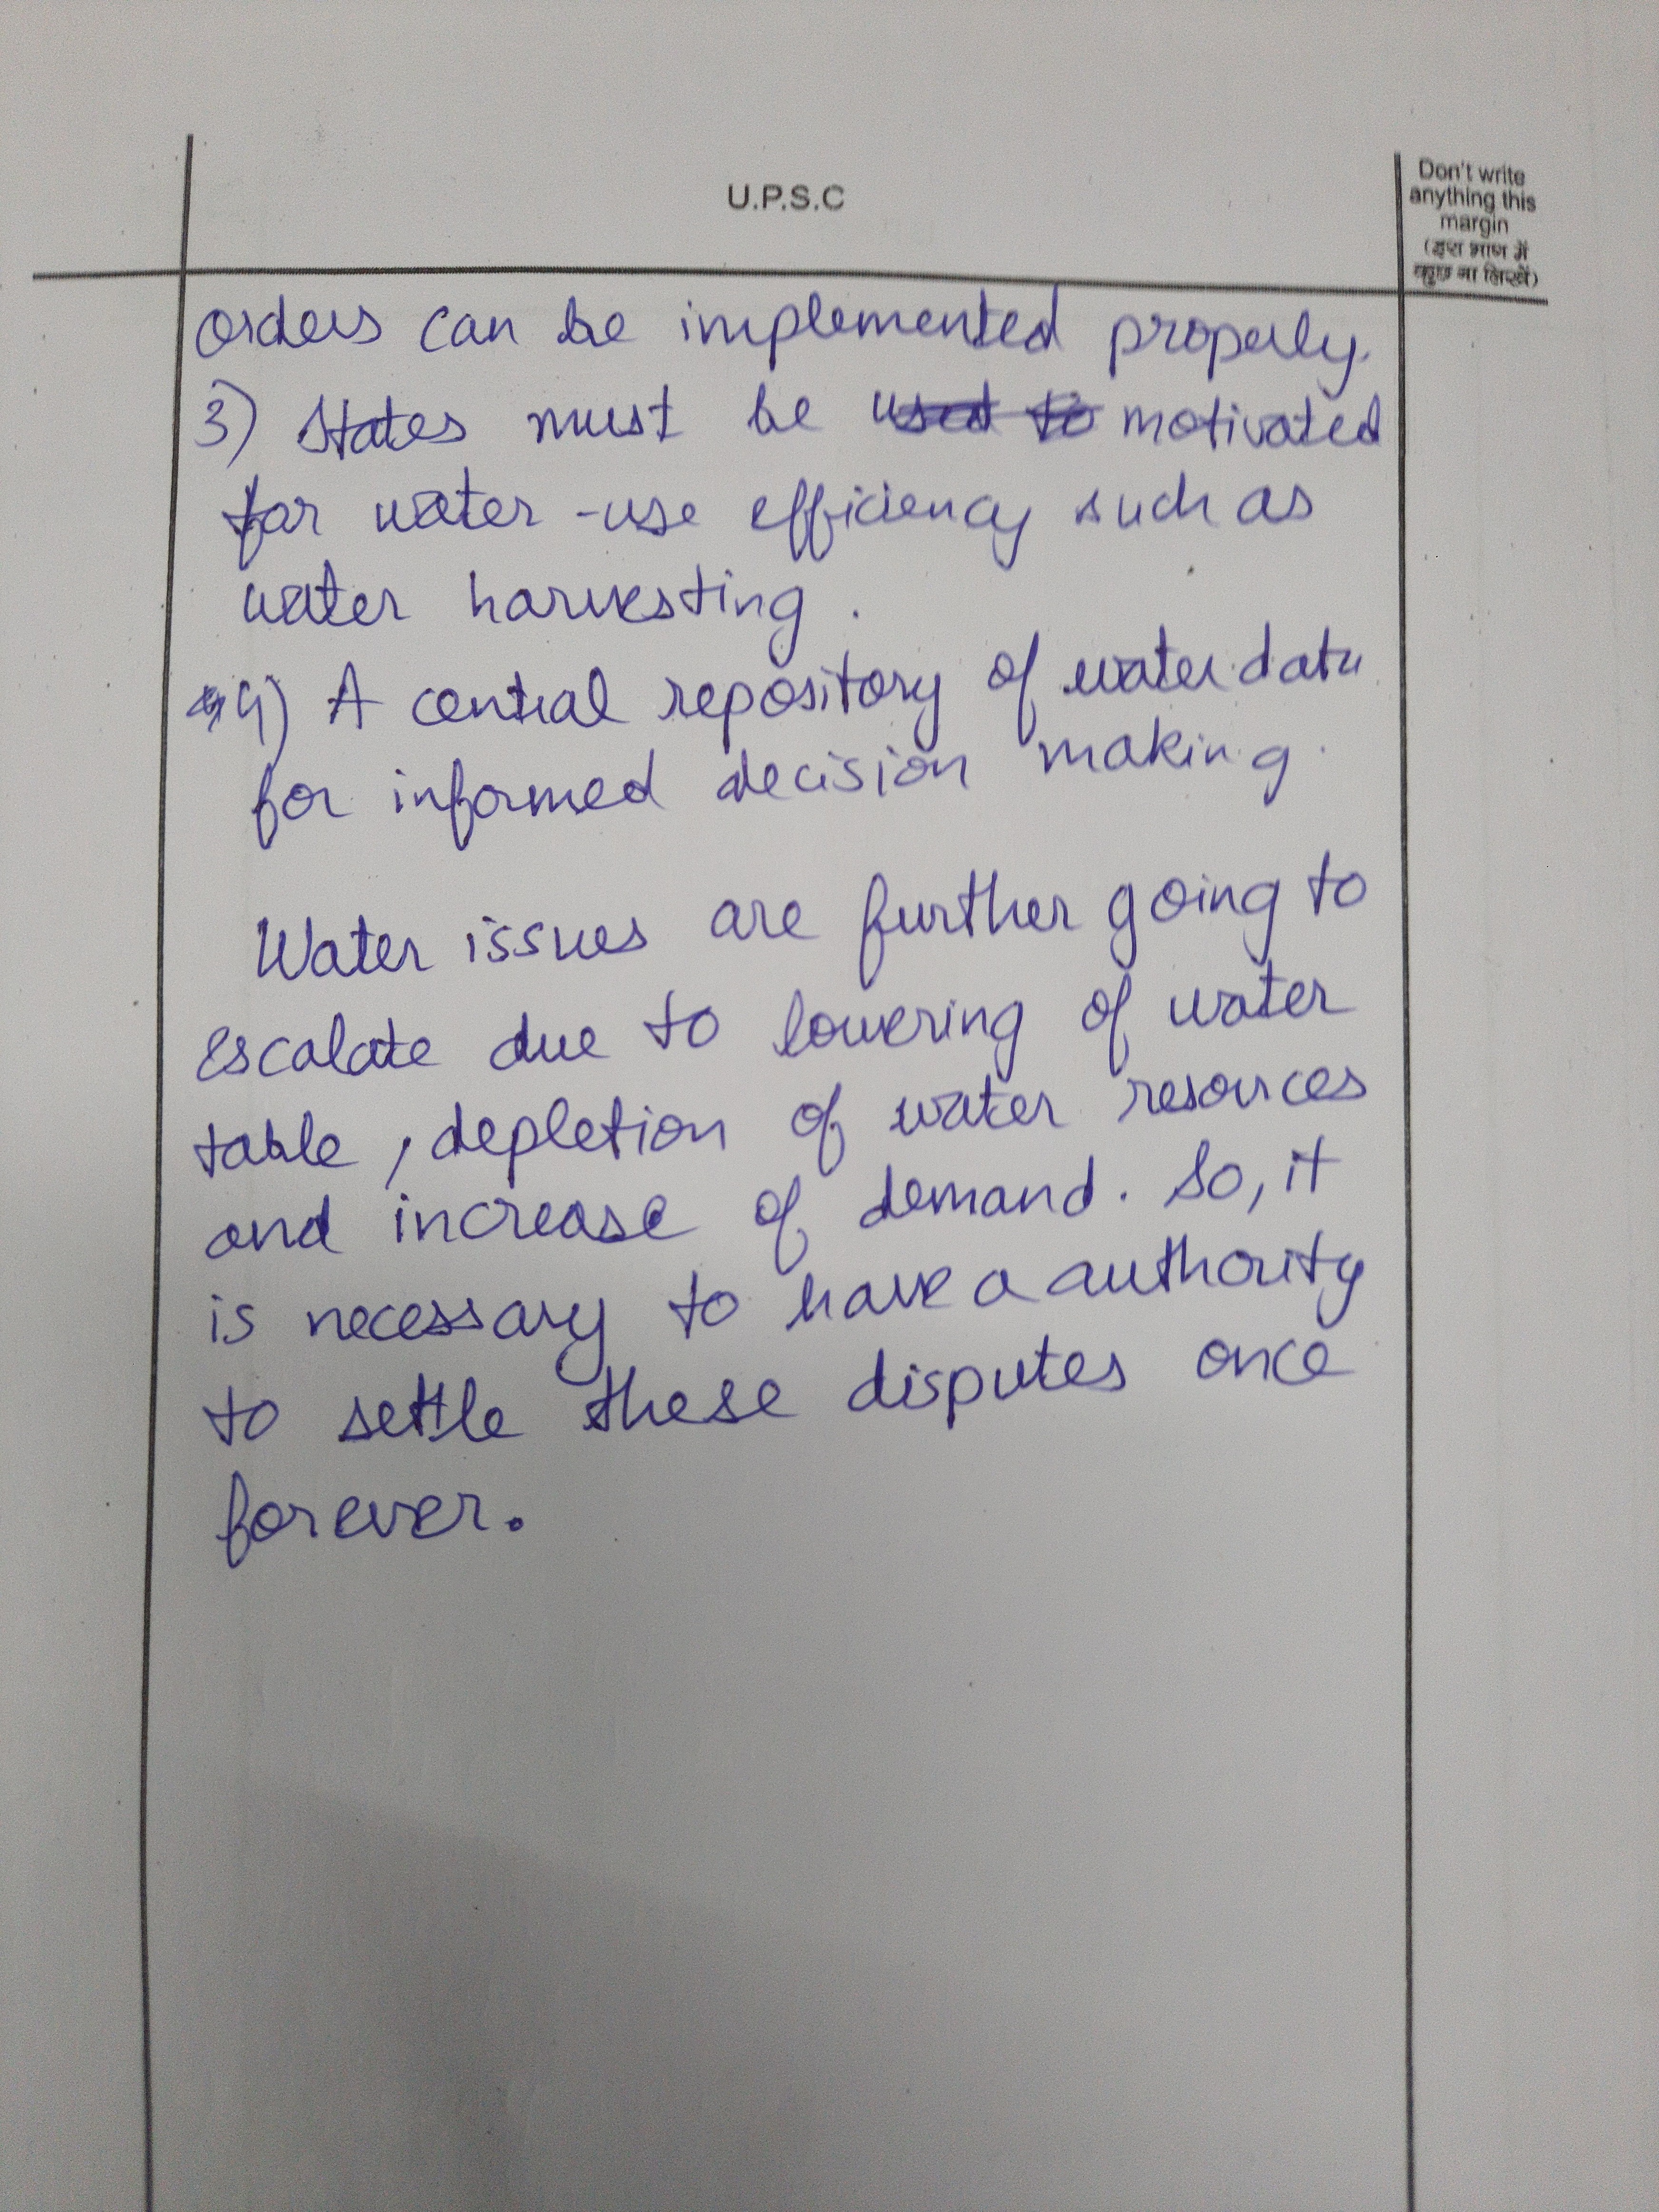 U.P.S.C
Don't write
anything this
margin
(इस भाग में
कुछ ना लिखें)
orders can be implemented properly.
3) States must be used to motivated
for water-use efficiency such as
water harvesting.
4) A central repository of water data
for informed decision making.
Water issues are further going to
escalate due to lowering of water
table, depletion of water resources
and increase of demand. So, it
is necessary to have a authority
to settle these disputes once
forever.